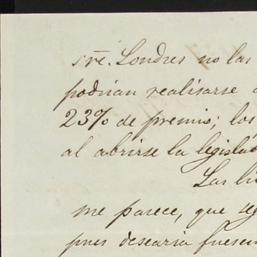 sre. Londres no las
podrian realisarse
23% de premio; los
al abrirse la legisla
Las
me parece, que
pues desearia fuesen